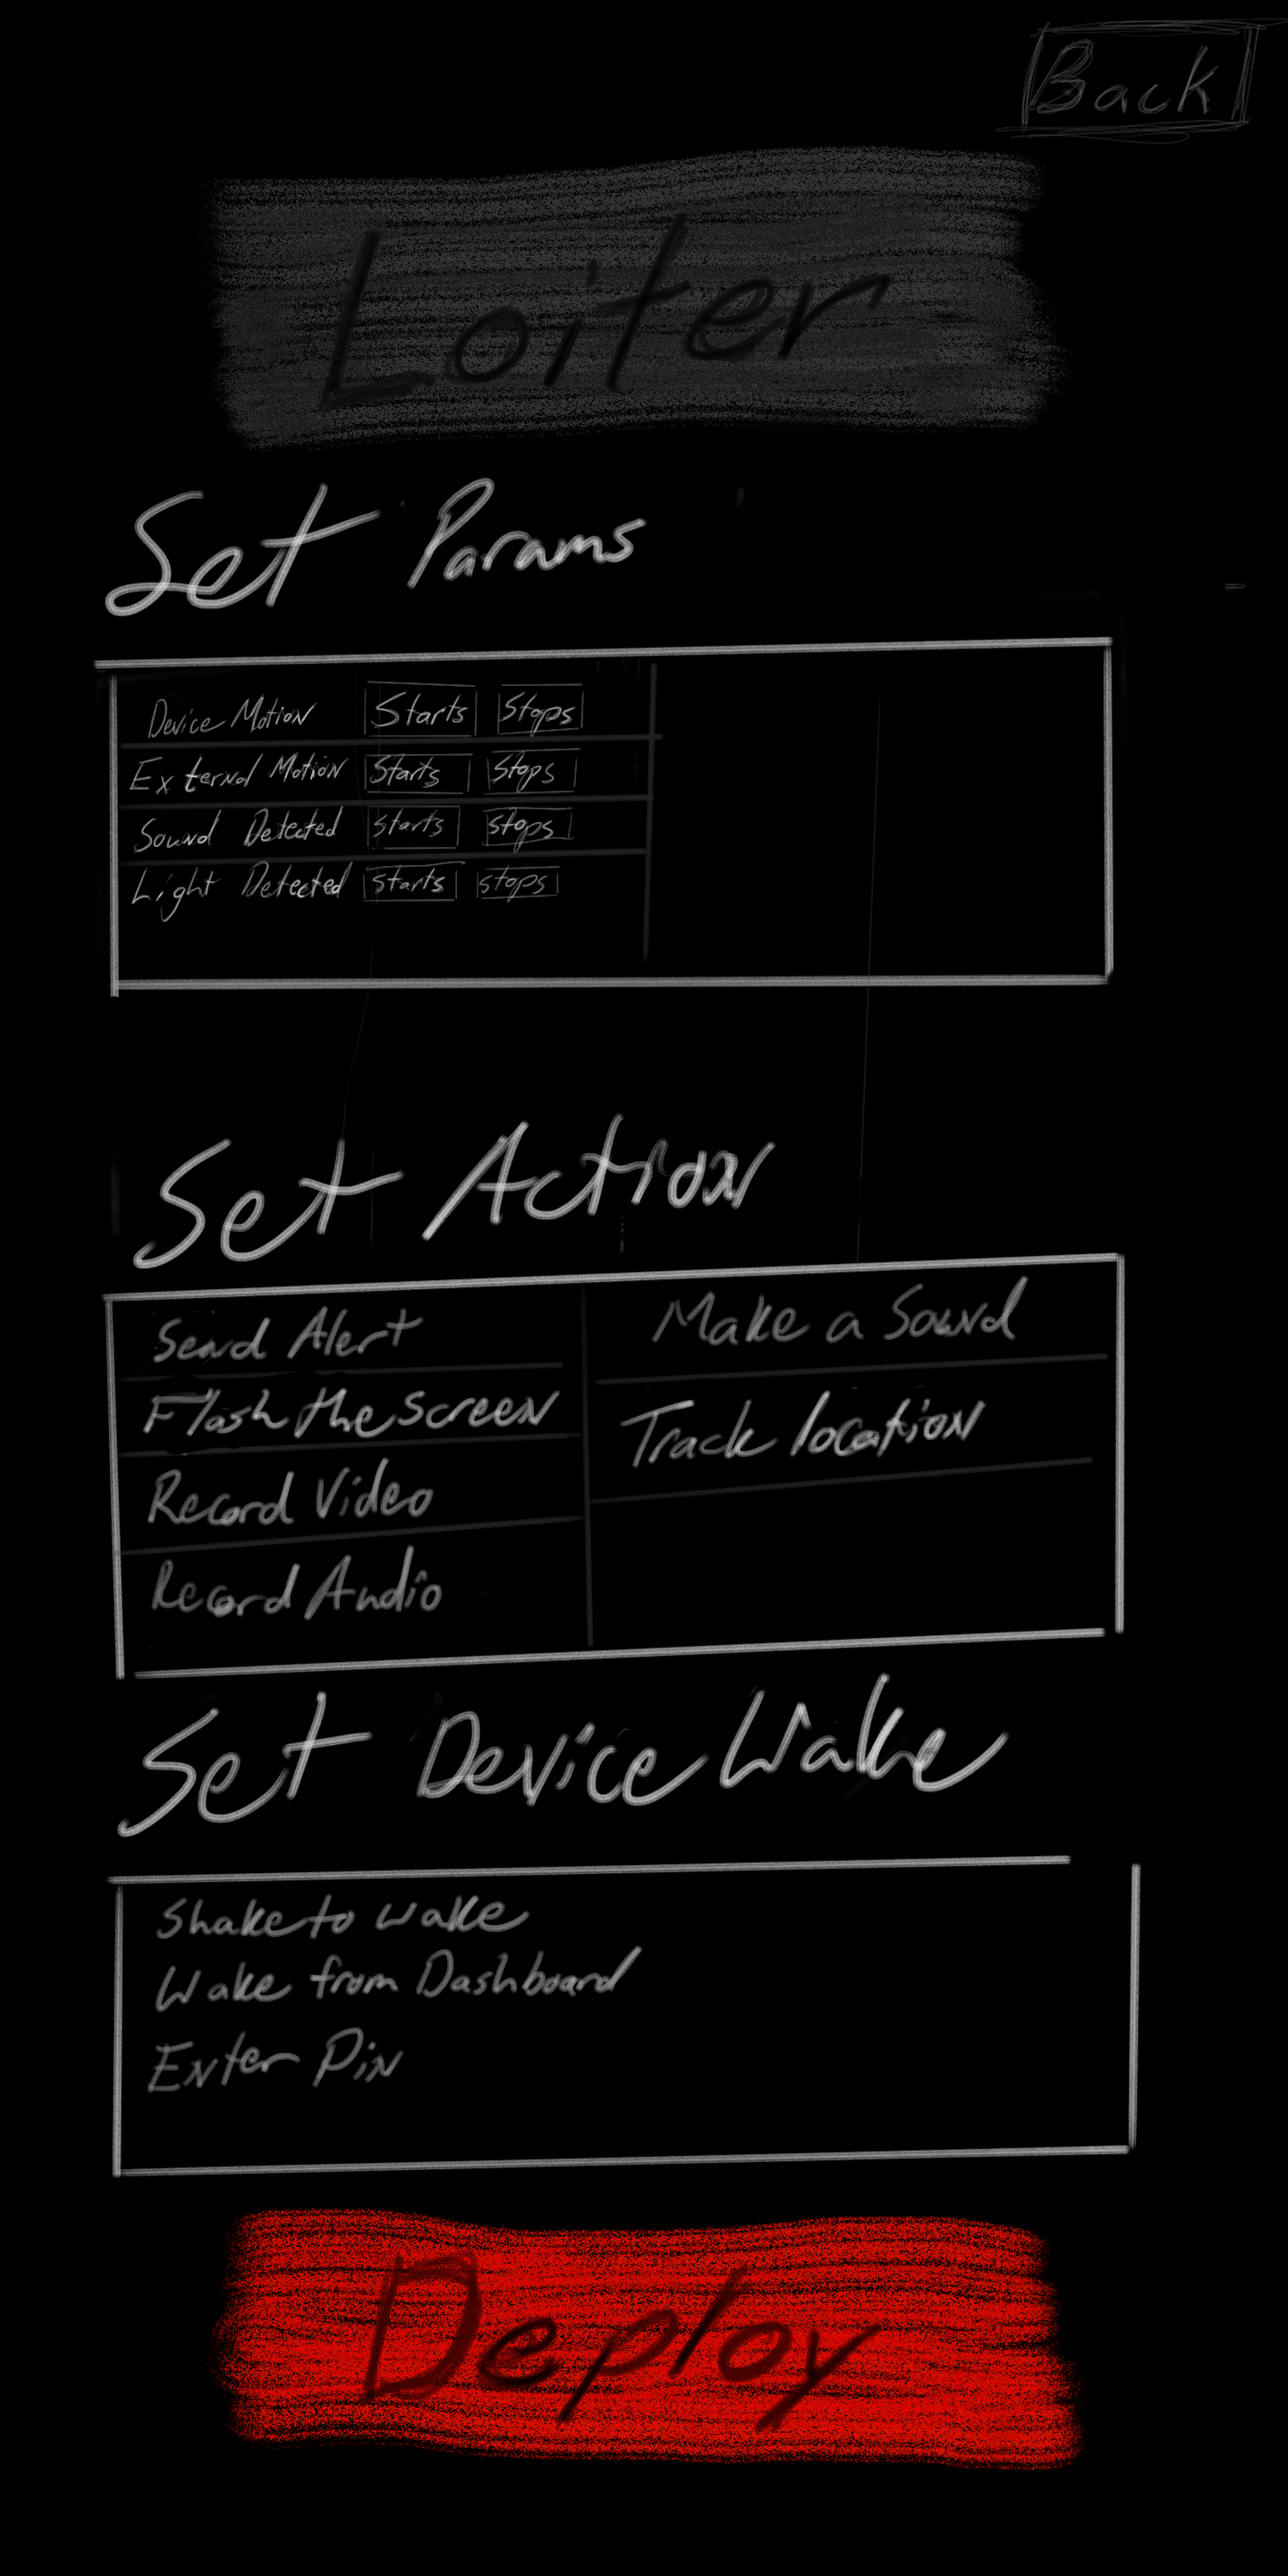 Back
Loiter
Set Params
Device Motion Starts Stops
External Motion Starts Stops
Sound Detected Starts Stops
Light Detected Starts Stops
Set Action
Send Alert
Flash the Screen
Record Video
Record Audio
Make a Sound
Track location
Set Device Wake
Shake to wake
Wake from Dashboard
Enter Pin
Deploy